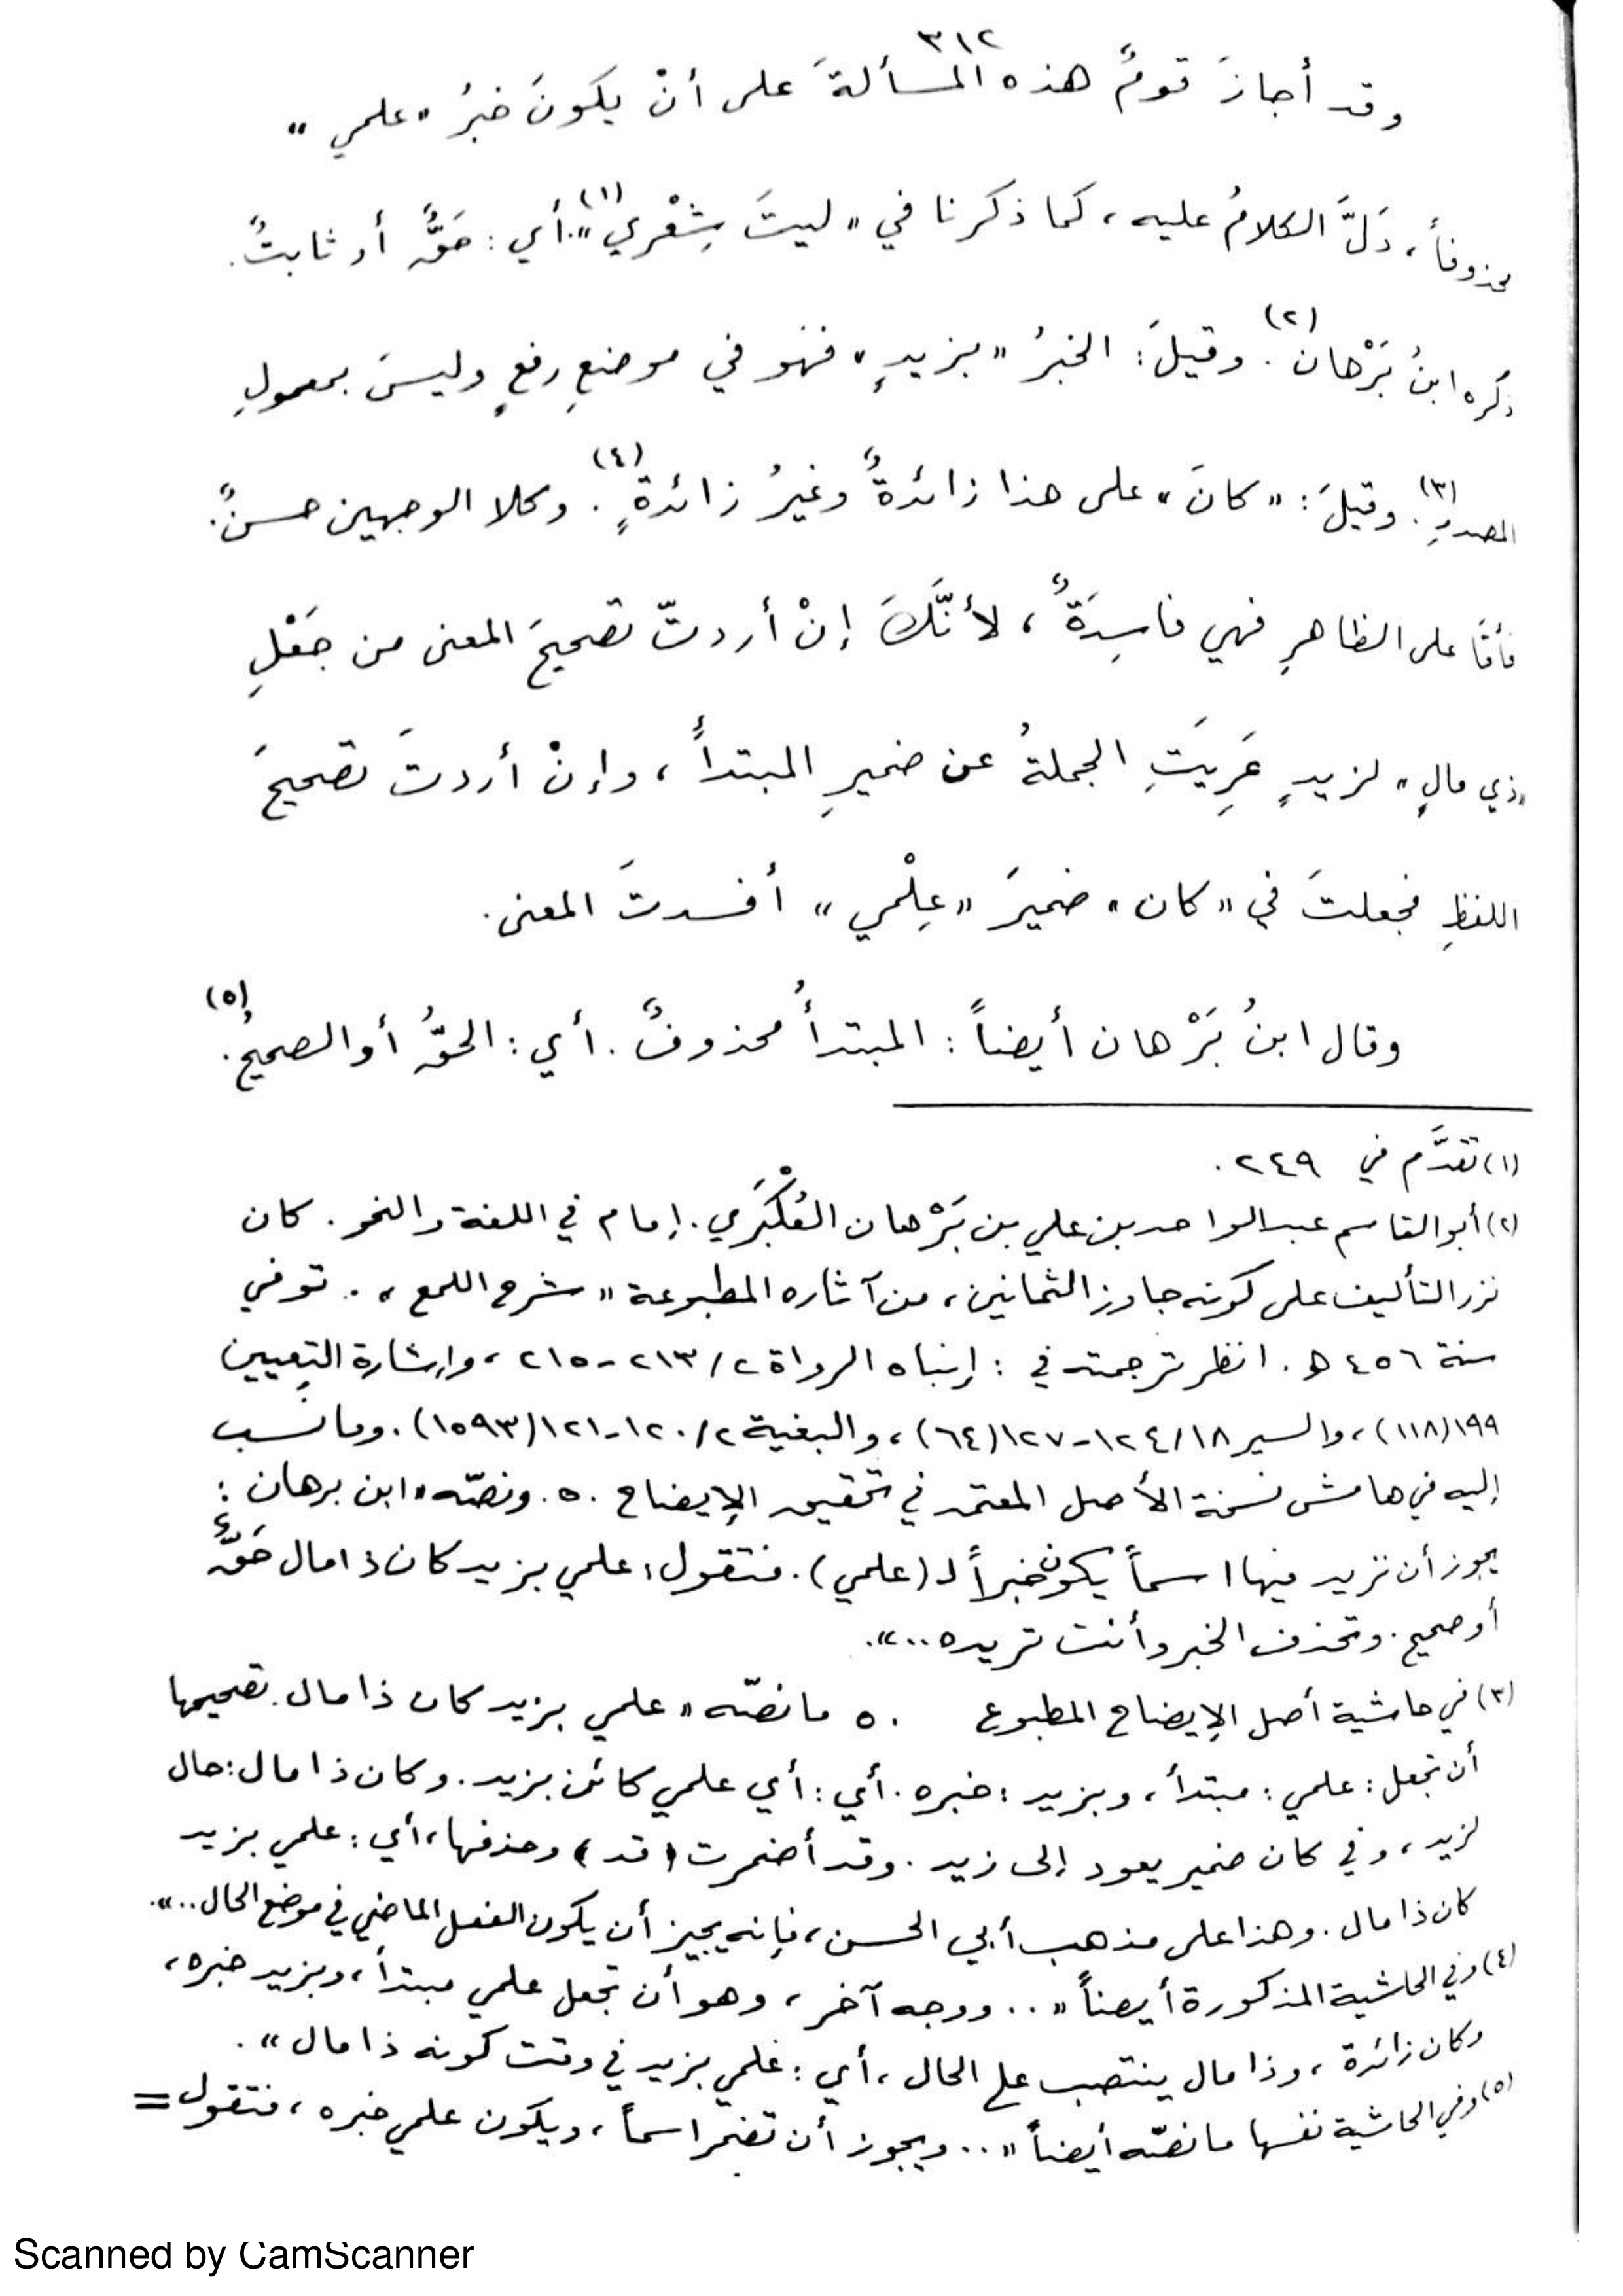 ٣١٢
وقد أجازَ قومٌ هذه المسألةَ على أنْ يكونَ خبرُ «علمي»
محذوفاً، دَلَّ الكلامُ عليه، كما ذكرنا في «ليتَ شِعْري»(١). أي: حَقٌّ أو ثابتٌ.
ذكره ابنُ بَرْهان(٢). وقيلَ: الخبرُ «بزيدٍ» فهو في موضعِ رفعٍ وليسَ بمعمولِ
المصدرِ(٣). وقيلَ: «كانَ» على هذا زائدةٌ وغيرُ زائدةٍ(٤). وكلا الوجهين حسنٌ.
فأمّا على الظاهرِ فهي فاسِدَةٌ، لأنَّكَ إنْ أردتّ تصحيحَ المعنى من جَعْلِ
«ذي مالٍ» لزيدٍ عَرِيَتِ الجملةُ عن ضميرِ المبتدأِ، وإنْ أردتَ تصحيحَ
اللفظِ فجعلتَ في «كان» ضميرَ «عِلْمي» أفسدتَ المعنى.
وقال ابنُ بَرْهان أيضاً: المبتدأُ محذوفٌ. أي: الحقُّ أو الصحيحُ(٥).
(١) تقدَّم في ٢٤٩.
(٢) أبو القاسم عبد الواحد بن علي بن بَرْهان العُكْبَري. إمام في اللغة والنحو. كان
نزر التأليف على كونه جاوز الثمانين، من آثاره المطبوعة «شرح اللمع». توفي
سنة ٤٥٦ ه. انظر ترجمته في: إنباه الرواة ٢/ ٢١٣-٢١٥، وإشارة التعيين
١٩٩(١١٨)، والسير ١٨/ ١٢٤-١٢٧(٦٤)، والبغية ٢/ ١٢٠-١٢١(١٥٩٣). وما نُسب
إليه في هامش نسخة الأصل المعتمد في تحقيق الإيضاح ٥٠. ونصّه «ابن برهان:
يجوز أن نزيد فيها اسماً يكون خبراً لـ (علمي). فتقول: علمي بزيد كان ذا مال حَقٌّ
أو صحيح. وتحذف الخبر وأنت تريده ..».
(٣) في حاشية أصل الإيضاح المطبوع ٥٠ ما نصّه «علمي بزيد كان ذا مال. تصحيحها
أن تجعل: علمي: مبتدأ، وبزيد: خبره. أي: أي علمي كائن بزيد. وكان ذا مال: حال
لزيد، وفي كان ضمير يعود إلى زيد. وقد أضمرت (قد) وحذفها، أي: علمي بزيد
كان ذا مال. وهذا على مذهب أبي الحسن، فإنه يجيز أن يكون الفعل الماضي في موضع الحال ..».
(٤) وفي الحاشية المذكورة أيضاً «.. ووجه آخر، وهو أن تجعل علمي مبتدأ، وبزيد خبره،
وكان زائدة، وذا مال ينتصب على الحال، أي: علمي بزيد في وقت كونه ذا مال».
(٥) وفي الحاشية نفسها ما نصّه أيضاً «.. ويجوز أن تضمر اسماً، ويكون علمي خبره، فتقول =
Scanned by CamScanner